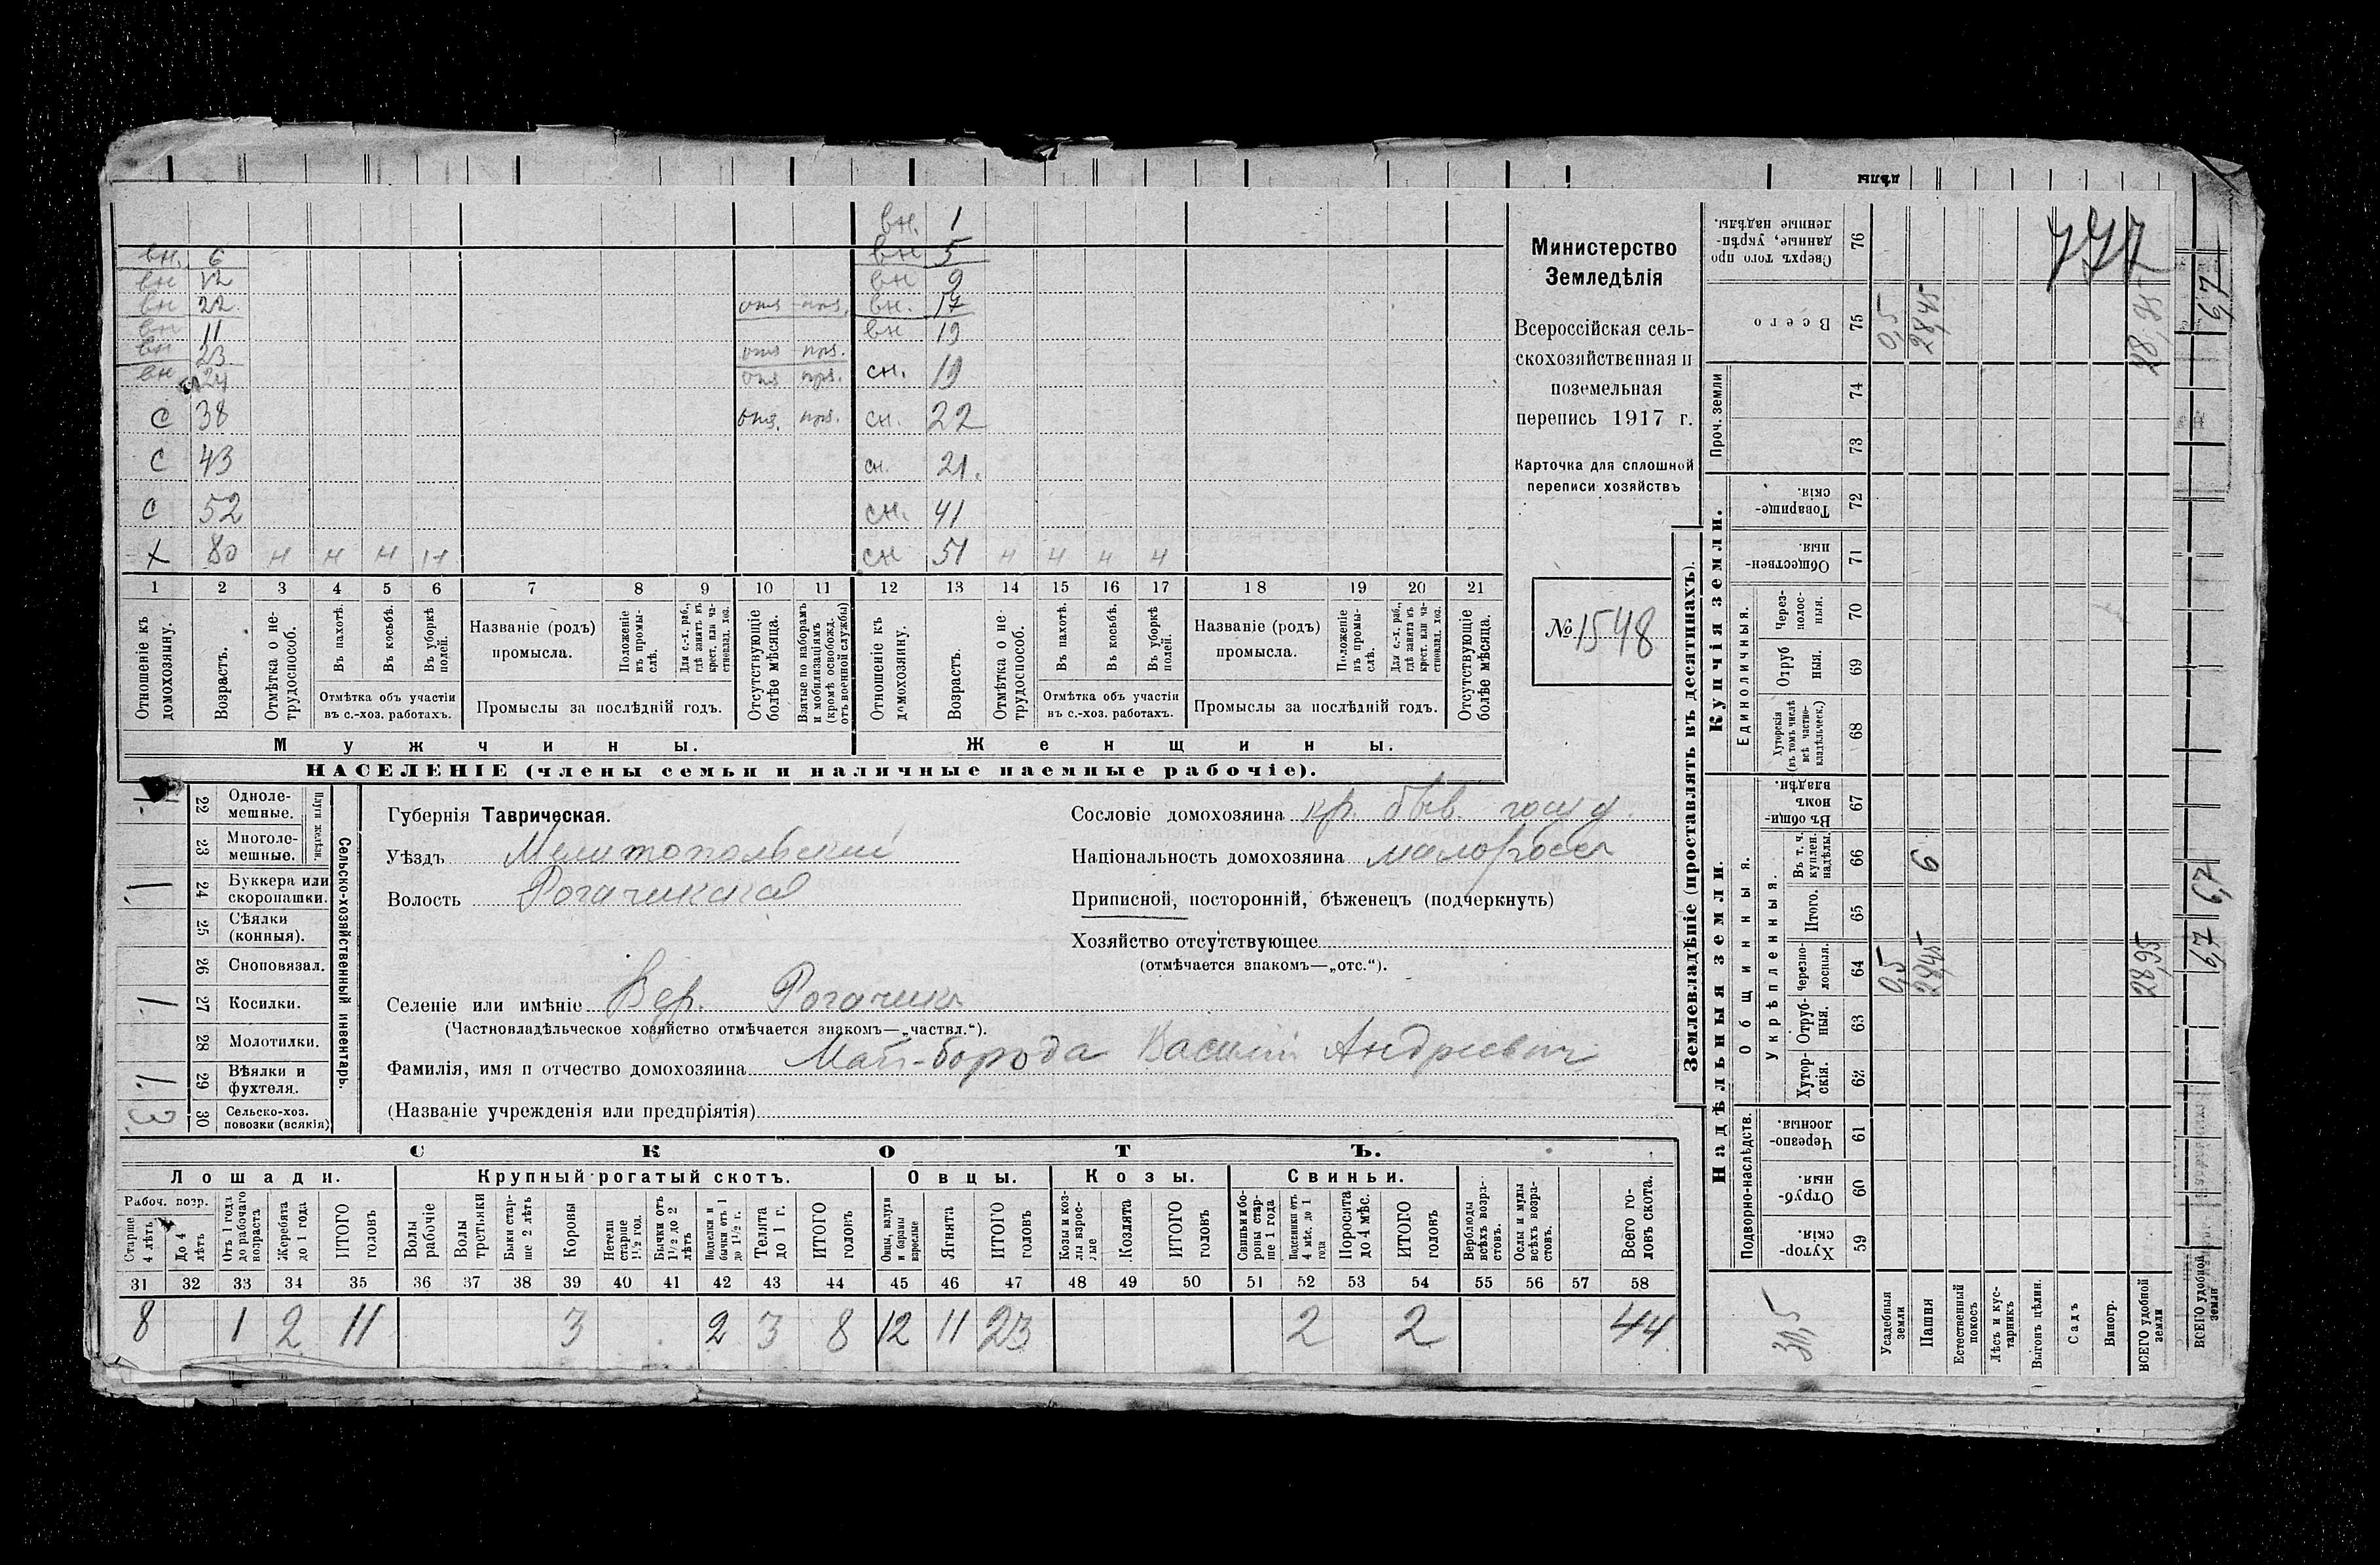 вн. 1
вн. 6 вн 5
вн 12 вн 9
вн 22 отя прз. вн. 17
вн 11 вн 19
вн 23 отя прз.
вн 24 отя прз. сн. 19
С 38 отя. прз. сн. 22
С 43 сн. 21.
С 52 сн. 41
х 80 н н н н сн 51 н н н н
1 2 3 4 5 6 7 8 9 10 11 12 13 14 15 16 17 18 19 20 21
Отношеніе къ домохозяину.
Возрастъ.
Отмѣтка о не-трудоспособ.
Въ пахотѣ.
Въ косьбѣ.
Въ уборкѣ полей.
Отмѣтка объ участіи
въ с.-хоз. работахъ.
Названіе (родъ)
промысла.
Положеніе въ промы-слѣ.
Для с.-х. раб., гдѣ занятъ въ крест. или ча-стновлад. хоз.
Промыслы за послѣдній годъ.
Отсутствующіе болѣе мѣсяца.
Взятые по наборамъ и мобилизаціямъ (кромѣ освобожд. отъ военной службы)
Отношеніе къ домохозяину.
Возрастъ.
Отмѣтка о не-трудоспособ.
Въ пахотѣ.
Въ косьбѣ.
Въ уборкѣ полей.
Отмѣтка объ участіи
въ с.-хоз. работахъ.
Названіе (родъ)
промысла.
Положеніе въ промы-слѣ.
Для с.-х. раб., гдѣ занята въ крест. или ча-стновлад. хоз.
Промыслы за послѣдній годъ.
Отсутствующіе болѣе мѣсяца.
Мужчины. Женщины.
НАСЕЛЕНІЕ (члены семьи и наличные наемные рабочіе).
Министерство
Земледѣлія
Всероссійская сель-
скохозяйственная и
поземельная
перепись 1917 г.
Карточка для сплошной
переписи хозяйствъ
№ 1548
Сельско-хозяйственный инвентарь.
Плуги желѣзн.
1 22 Одноле-мешные.
23 Многоле-мешные.
1 24 Буккера или скоропашки.
25 Сѣялки (конныя).
26 Сноповязал.
1 27 Косилки.
28 Молотилки.
1. 29 Вѣялки и фухтеля.
3. 30 Сельско-хоз. повозки (всякія)
Губернія Таврическая.
Уѣздъ Мелитопольский
Волость Рогачикская
Селеніе или имѣніе Вер. Рогачик
(Частновладѣльческое хозяйство отмѣчается знакомъ—„частвл.“).
Фамилія, имя и отчество домохозяина Май-борода Василий Андреевич
(Названіе учрежденія или предпріятія)
Сословіе домохозяина кр. быв. госуд.
Національность домохозяина малоросс
Приписной, посторонній, бѣженецъ (подчеркнуть)
Хозяйство отсутствующее
(отмѣчается знакомъ—„отс.“).
СКОТЪ.
Лошади. Крупный рогатый скотъ. Овцы. Козы. Свиньи.
Рабоч. возр.
Старше 4 лѣтъ
До 4 лѣтъ
Отъ 1 года до рабочаго возраста
Жеребята до 1 года
ИТОГО головъ
Волы рабочіе
Волы третьяки
Быки стар-ше 2 лѣтъ
Коровы
Нетели старше 1½ год.
Бычки отъ 1½ до 2 лѣтъ
Подтелки и бычки отъ 1 до 1½ г.
Телята до 1 г.
ИТОГО головъ
Овцы, валухи и бараны взрослые
Ягнята
ИТОГО головъ
Козы и коз-лы взрос-лые
Козлята
ИТОГО головъ
Свиньи и бо-ровы стар-ше 1 года
Подсвинки отъ 4 мѣс. до 1 года
Поросята до 4 мѣс.
ИТОГО головъ
Верблюды всѣхъ возра-стовъ.
Ослы и мулы всѣхъ возра-стовъ.
Всего го-ловъ скота.
31 32 33 34 35 36 37 38 39 40 41 42 43 44 45 46 47 48 49 50 51 52 53 54 55 56 57 58
8 1 2 11 3 2 3 8 12 11 23 2 2 44
Землевладѣніе (проставлять въ десятинахъ).
Купчія земли.
Надѣльныя земли.
777
Сверхъ того про-данные, укрѣп-ленные надѣлы. 76
Всего 75 0,5 28,45 28,95
Проч. земли 74
73
Товарище-скія. 72
Обществен-ныя. 71
Единоличныя.
Через-полос-ныя. 70
Отруб-ныя. 69
Хуторскія (въ томъ числѣ всѣ частно-владѣльческ.) 68
Общинныя.
Въ общи-номъ владѣн. 67
Укрѣпленныя.
Въ т. ч. куплен. надѣлы. 66 6
Итого. 65
Черезпо-лосныя. 64 0,5 28,45 28,95
Отруб-ныя. 63
Хутор-скія. 62
Подворно-наслѣдств.
Черезпо-лосныя. 61
Отруб-ныя. 60
Хутор-скія. 59
Усадебныя земли
Пашня
Естественный покосъ
Лѣсъ и кус-тарникъ
Выгонъ цѣлин.
Садъ
Виногр.
ВСЕГО удобной земли
6,7
6,7
6,7
ВСЕГО удобной земли